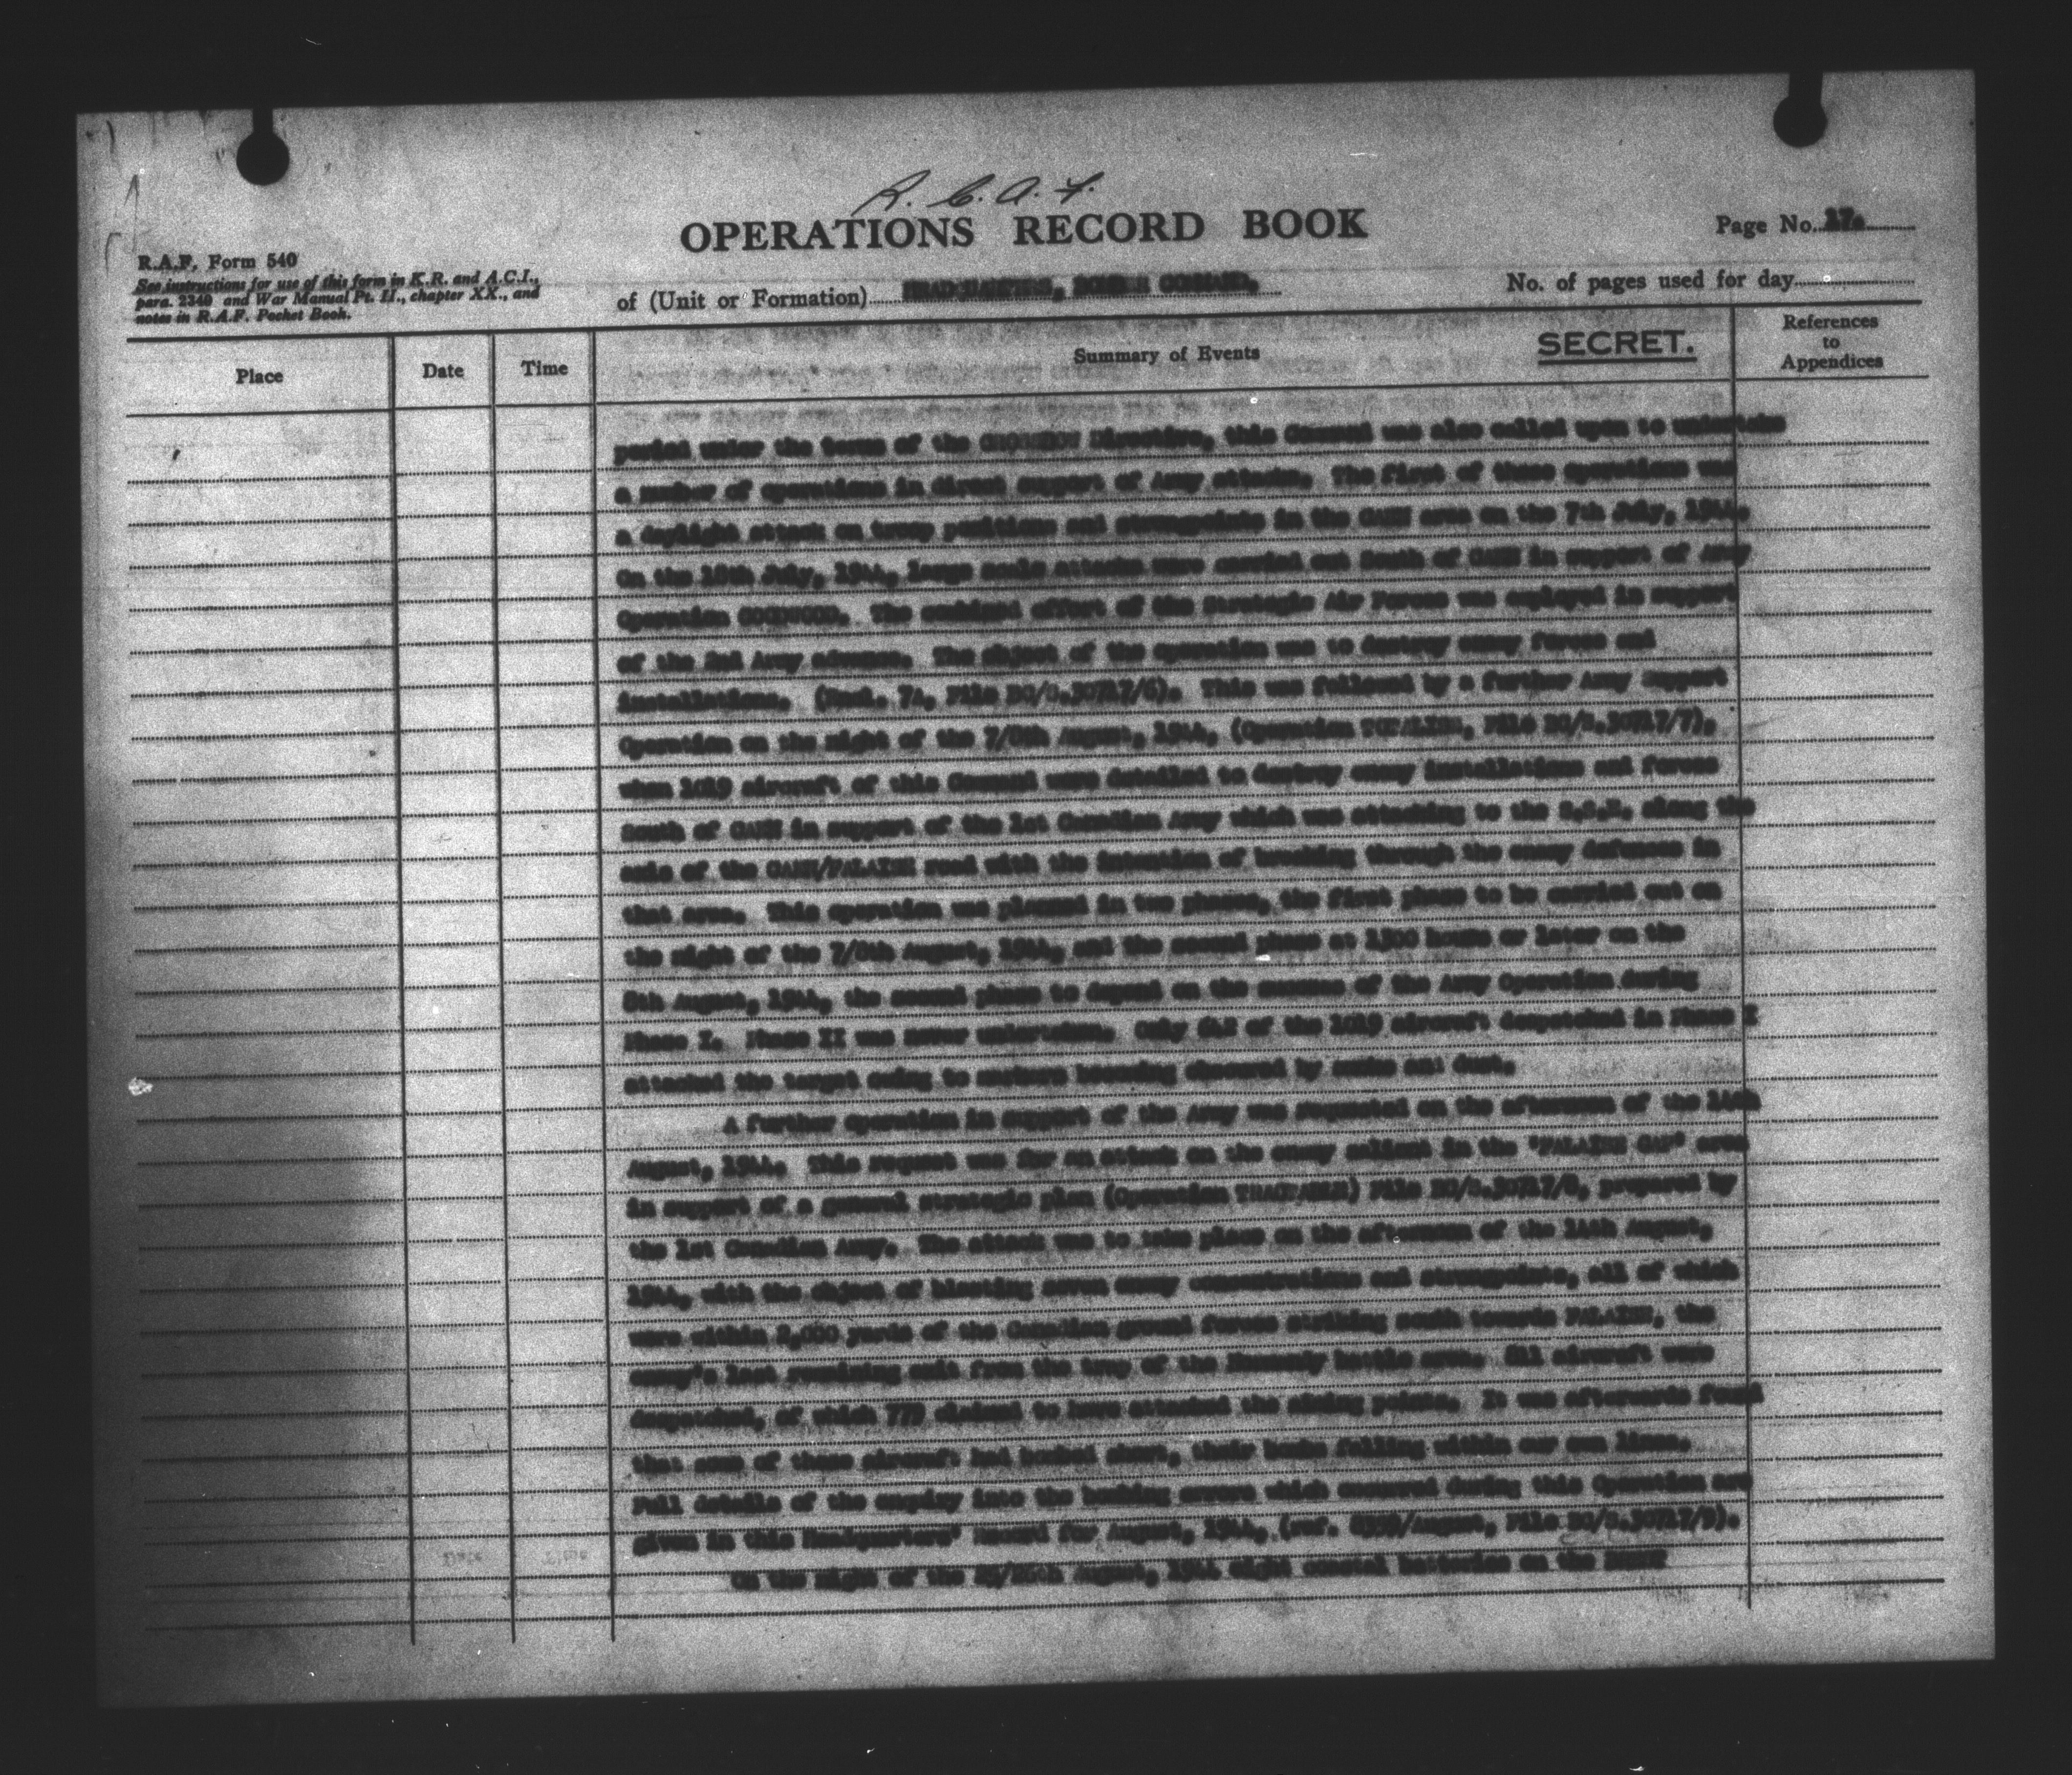 R. C. A. F.
OPERATIONS RECORD BOOK
Page No. 17.
R.A.F. Form 540
See instructions for use of this form in K.R. and A.C.I.,
para. 2349 and War Manual Pt. II., chapter XX., and
notes in R.A.F. Pocket Book.
of (Unit or Formation) HEADQUARTERS, BOMBER COMMAND.
No. of pages used for day
Place
Date
Time
Summary of Events
SECRET.
References
to
Appendices
period under the terms of the Directive, this Command was also called upon to undertake
a number of operations in direct support of Army attacks. The first of these operations was
a daylight attack on troop positions and strongpoints in the CAEN area on the 7th July, 1944.
On the 18th July, 1944, large scale attacks were carried out South of CAEN in support of Army
Operation GOODWOOD. The combined effort of the Strategic Air Forces was employed in support
of the 2nd Army advance. The object of the operation was to destroy enemy forces and
installations. (Encl. 7A, File BC/S.30717/6). This was followed by a further Army Support
Operation on the night of the 7/8th August, 1944, (Operation TOTALIZE, File BC/S.30717/7).
when 1019 aircraft of this Command were detailed to destroy enemy installations and forces
South of CAEN in support of the 1st Canadian Army which was attacking to the S.S.E. along the
axis of the CAEN/FALAISE road with the intention of breaking through the enemy defences in
that area. This operation was planned in two phases, the first phase to be carried out on
the night of the 7/8th August, 1944, and the second phase at 1300 hours or later on the
8th August, 1944, the second phase to depend on the success of the Army Operation during
Phase I. Phase II was never undertaken. Only 642 of the 1019 aircraft despatched in Phase I
attacked the target owing to markers becoming obscured by smoke and dust.
A further operation in support of the Army was requested on the afternoon of the 14th
August, 1944. This request was for an attack on the enemy salient in the "FALAISE GAP" area
in support of a general strategic plan (Operation TRACTABLE) File BC/S.30717/8, prepared by
the 1st Canadian Army. The attack was to take place on the afternoon of the 14th August,
1944, with the object of blasting seven enemy concentrations and strongpoints, all of which
were within 2,000 yards of the Canadian ground forces striking south towards FALAISE, the
enemy's last remaining exit from the trap of the Normandy battle area. 811 aircraft were
despatched, of which 779 claimed to have attacked the aiming points. It was afterwards found
that some of these aircraft had bombed short, their bombs falling within our own lines.
Full details of the enquiry into the bombing errors which occurred during this Operation are
given in this Headquarters' Record for August, 1944, (ref. /August, File BC/S.30717/9).
On the night of the 25/26th August, 1944 eight coastal batteries on the BREST